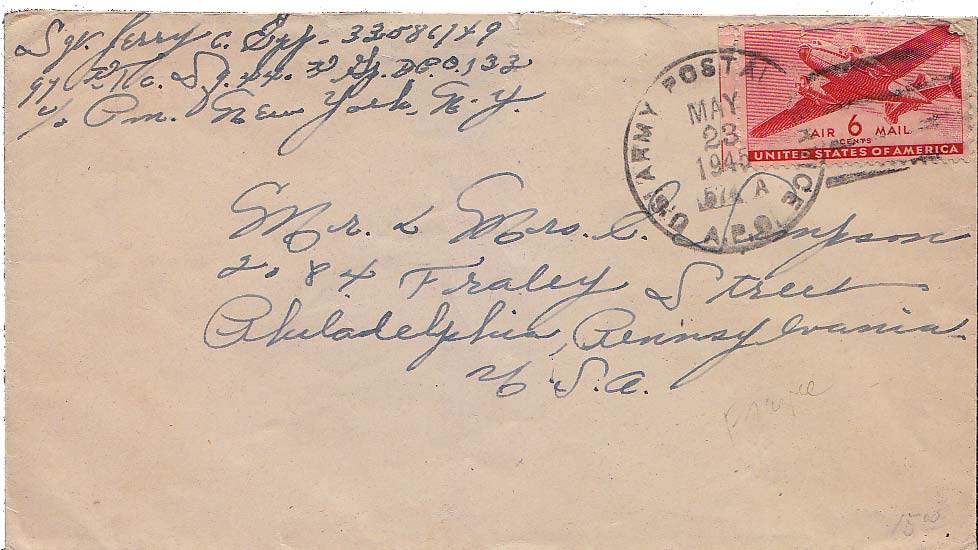 Sgt. Jerry C. Epp - 33086149
c/o Pm. New York, N.Y.
U.S. ARMY POSTAL SERVICE
MAY
23
1945
A.P.O.
AIR 6 MAIL
CENTS
UNITED STATES OF AMERICA
Mr. & Mrs. C. Simpson
2084 Fraley Street
Philadelphia, Pennsylvania
U.S.A.
France
15 00